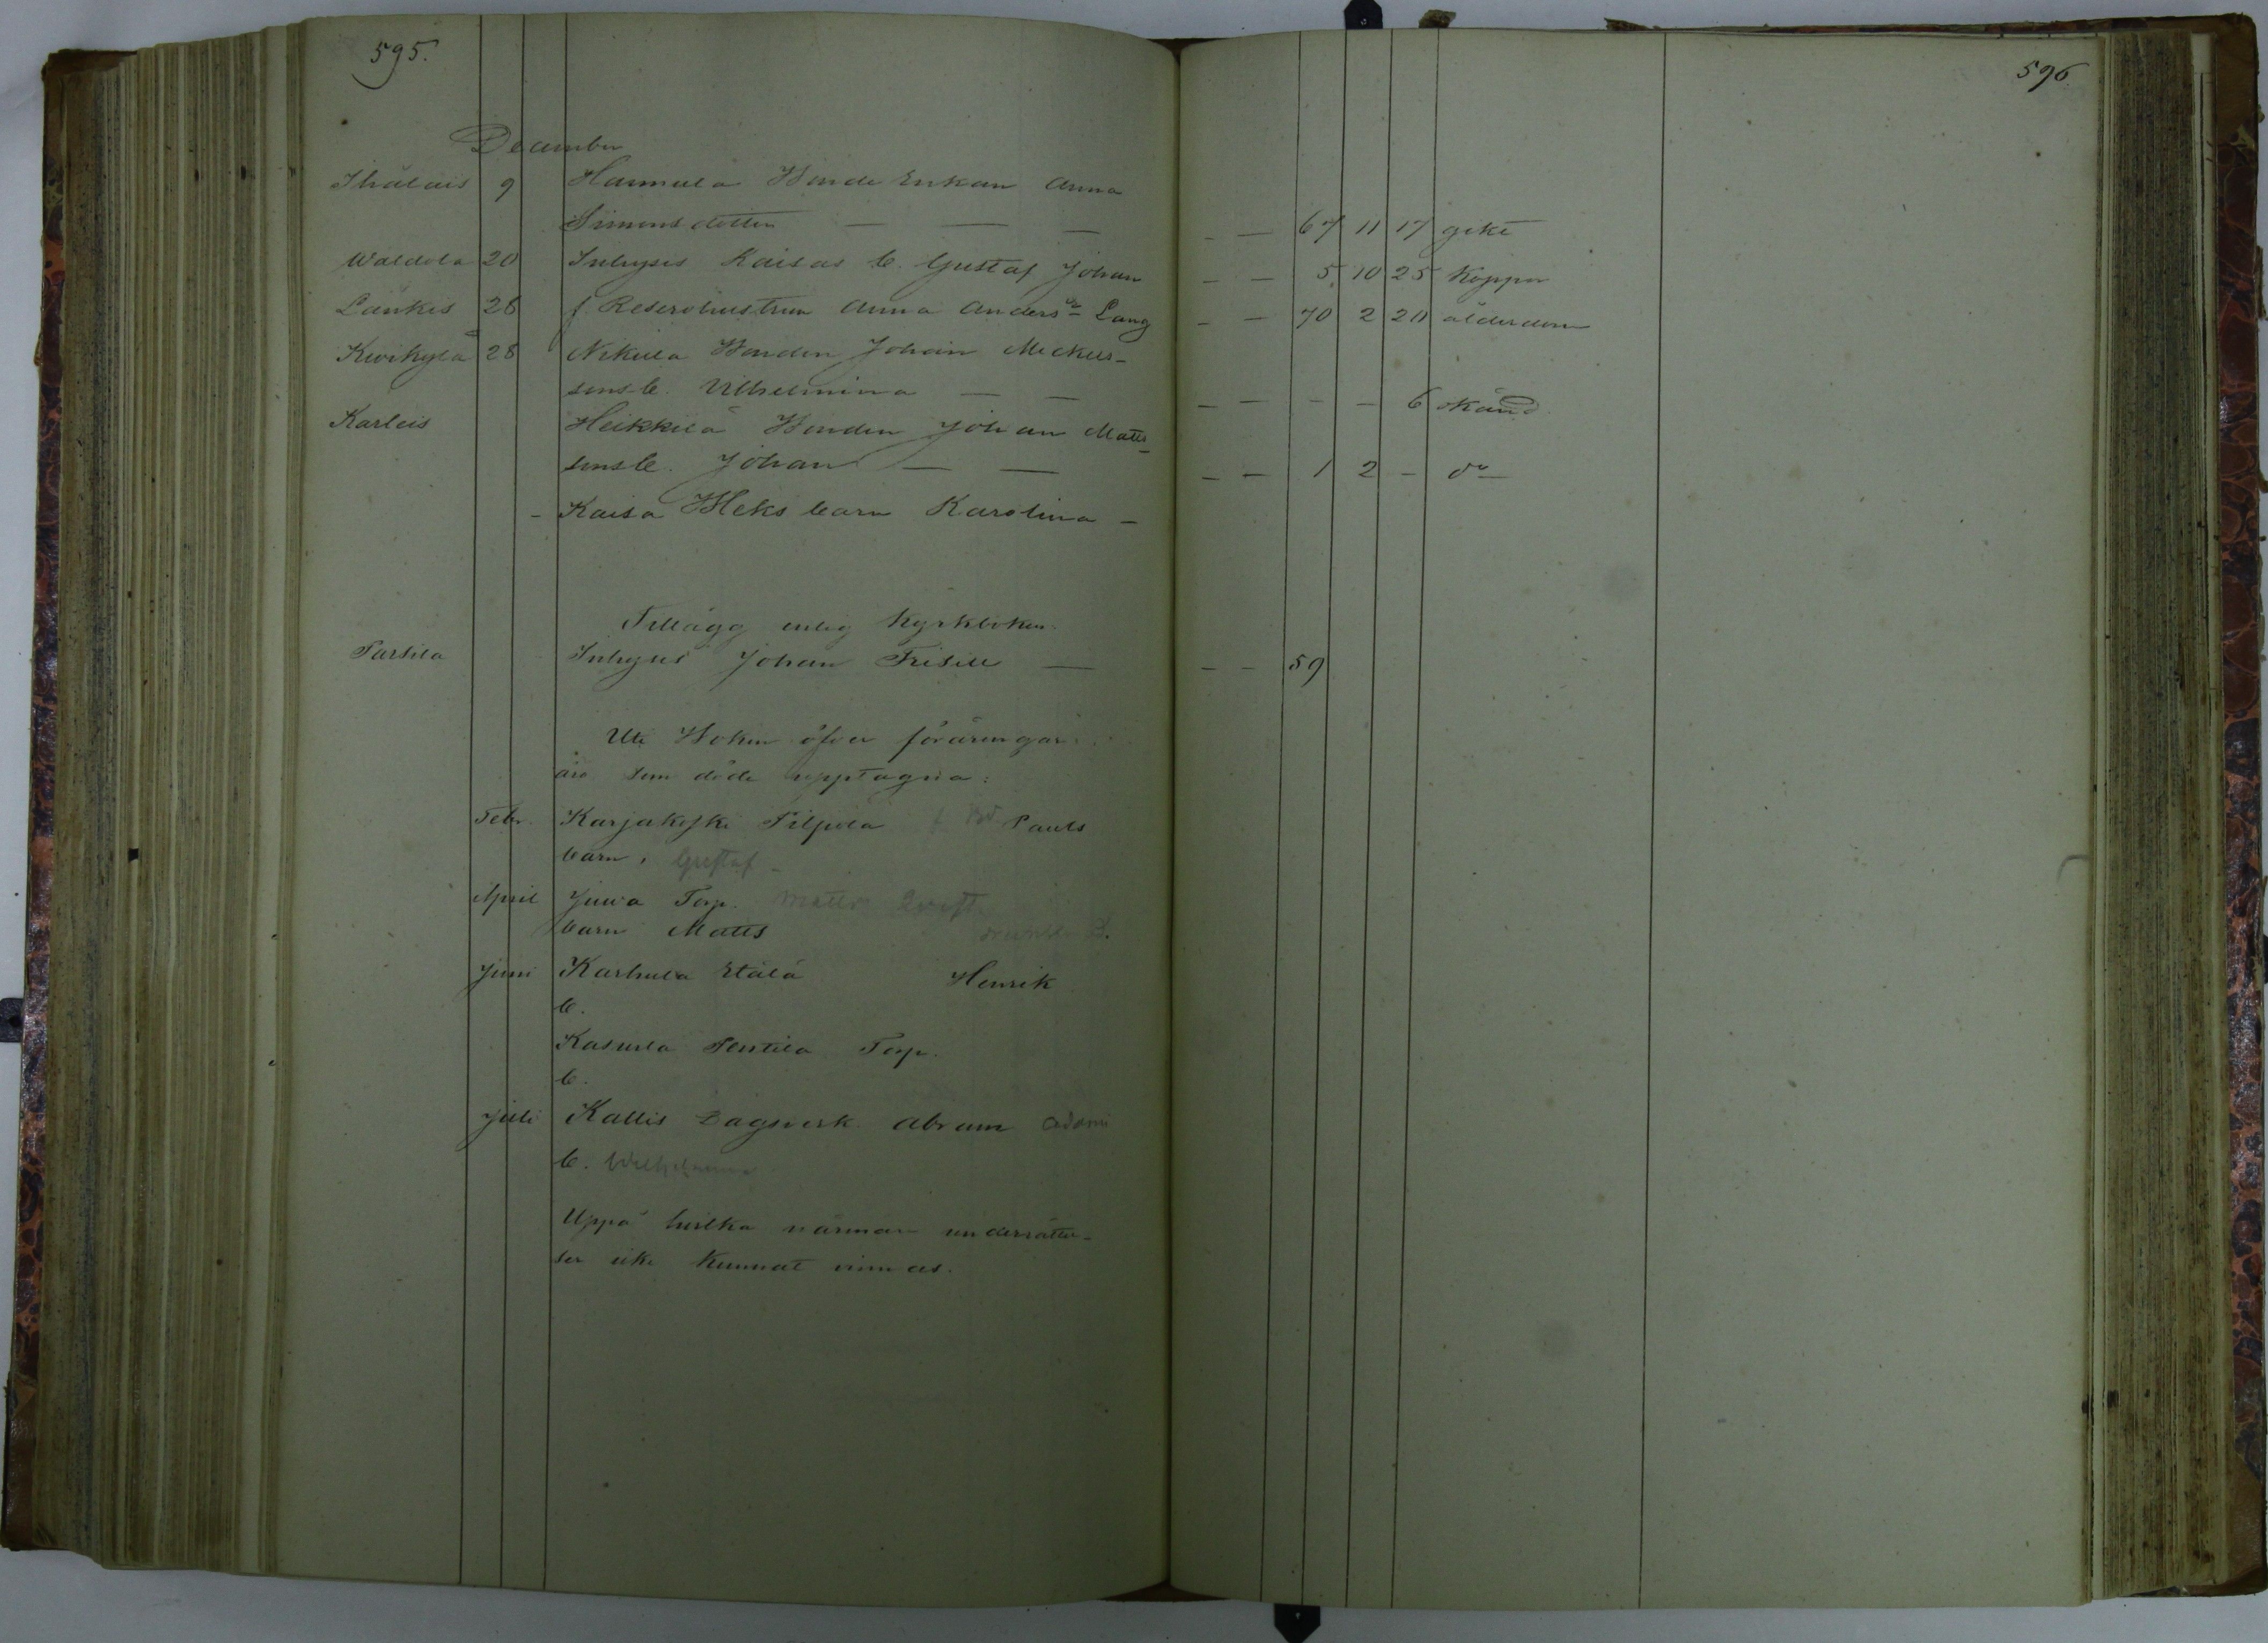 595.
596
December
Ihälais 9 Hannula Bonde Enkan Anna
Simons dotter — — — — — 67 11 17 gikt
Waldola 20 Inhyses Kaisas b. Gustaf Johan — — 5 10 25 Koppor
Länkis 26 f. Reservhustrun Anna Andersdr Lang — — 70 2 20 ålderdom
Kivikylä 28 Nikula Bonden Johan Mickels-
sons b. Vilhelmina — — — — — — 6 okänd
Karleis Heikkilä Bonden Johan Matts-
sons b. Johan — — — — 1 2 — do
- Kaisa Heks barn Karolina -
Tillägg enlig Kyrkboken.
Parsila Inhyses Johan Frisell — — — 59
Uti Boken öfver föräringar
äro som döde upptagna:
Febr. Karjakoski Pilpola f. Bd. Pauls
barn, Gustaf
April Juva Torp. Matts Qvist
barn Matts
Juni Karhula Etälä Henrik
b.
Kasurla Penttila Torp.
b.
Juli Kallis Dagsverk. Abram Adami
b. Wilhelmina
Uppå hvilka närmare underrättel-
ser icke kunnat vinnas.